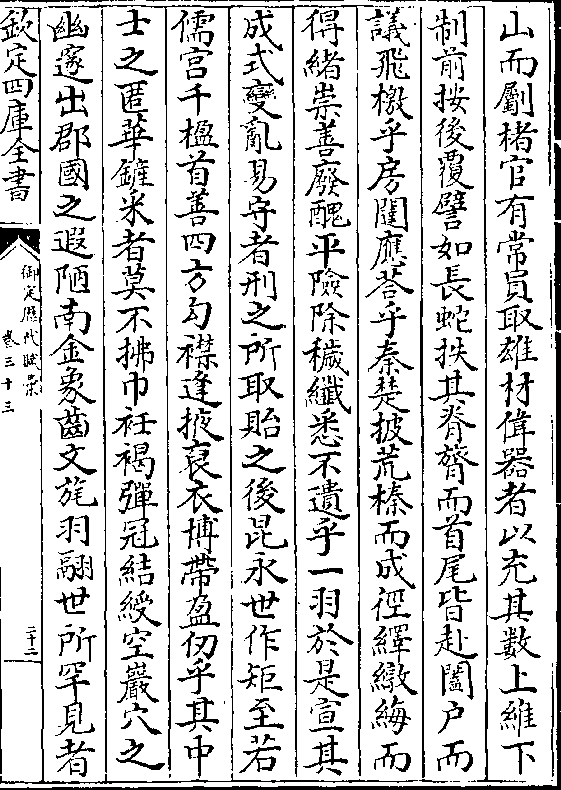 山而劚楮官有常員取雄材偉器者以充其數上維下
制前按後覆譬如長蛇抶其脊膂而首尾皆赴闔户而
議飛檄乎房闥應荅乎秦楚披荒榛而成徑繹繳繳而
得緒崇善廢醜平險除穢纖悉不遺乎一羽於是宣其
成式變亂易守者刑之所取貽之後昆永世作矩至若
儒宫千楹首善四方勾襟逢掖裒衣博帶盈仞乎其中
士之匿華鏟采者莫不拂巾衽褐彈冠結綬空巖穴之
幽邃出郡國之遐陋南金象齒文旄羽翮世所罕見者
欽定四庫全書
御定歷代賦彙
卷三十三
三十二